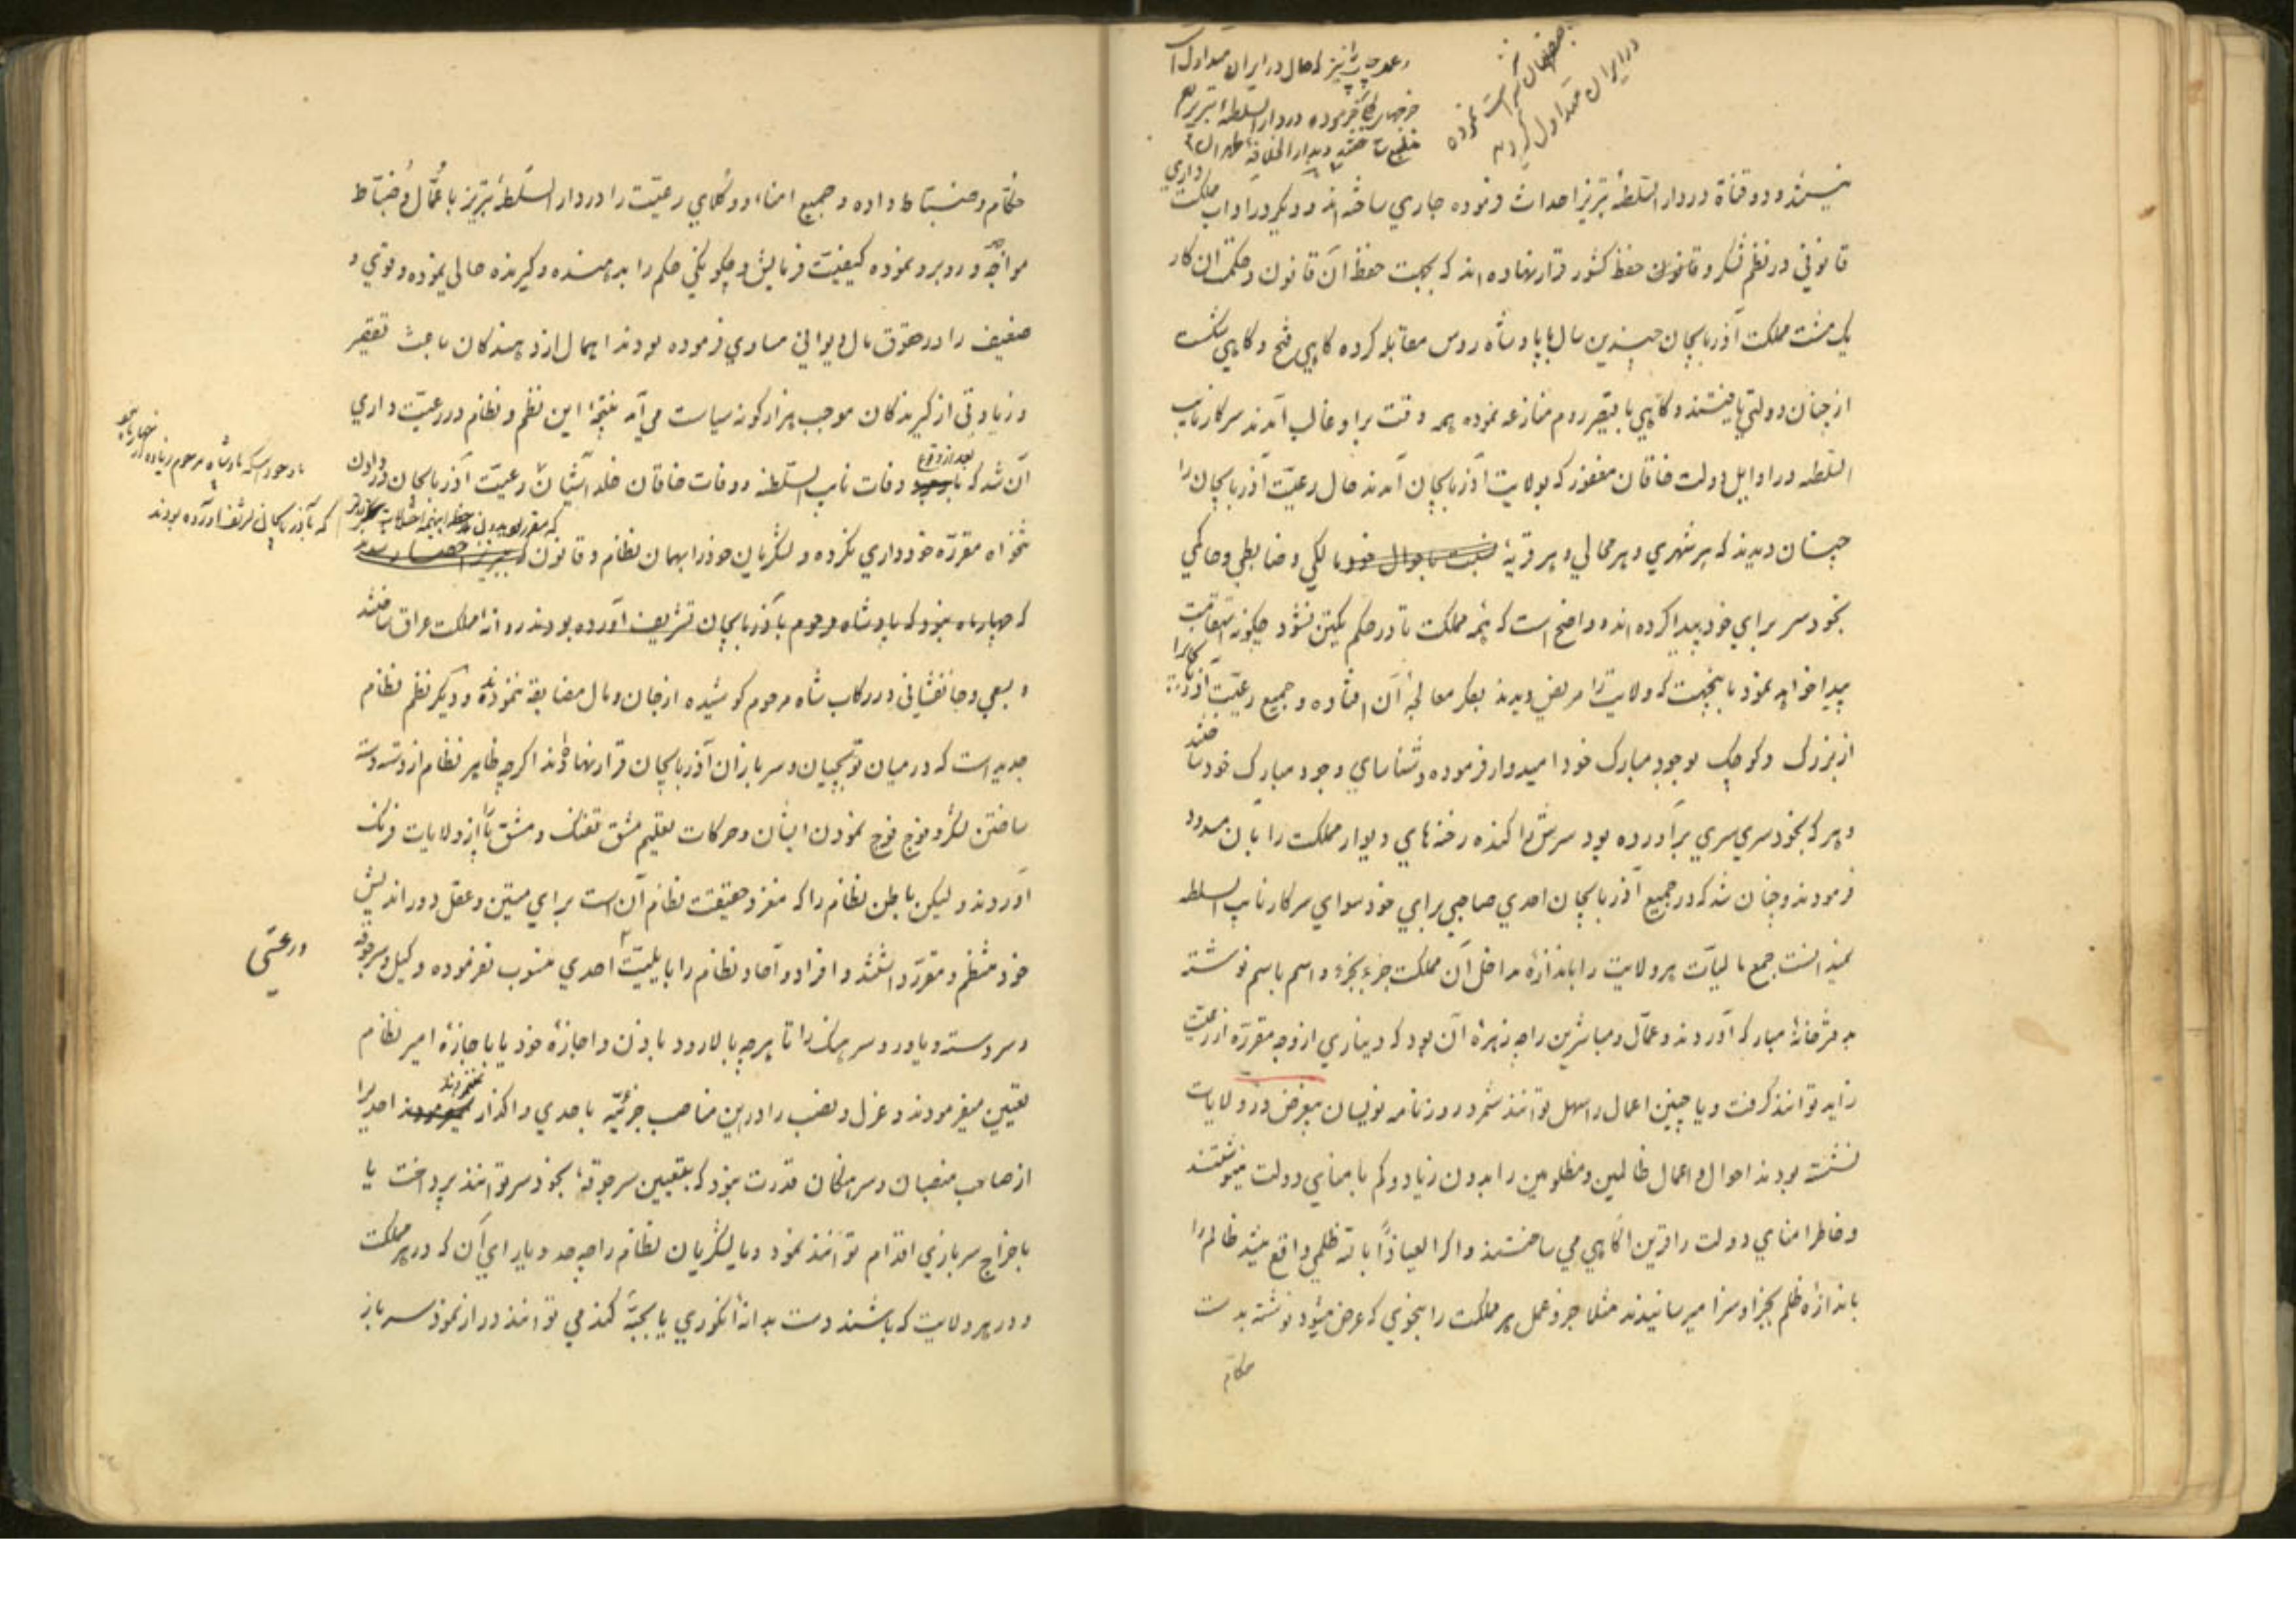 و عمل چاپ نیز که حال در ایران متداول است
فرموده در دار السلطنهٔ تبریز هم
و بدار الخلافهٔ طهران
در ایران متداول گردید
داری
و دو قناة در دار السّلطنهٔ تبریز احداث فرموده جاری ساخته‌اند و دیگر در آداب مملکت
قانونی در نظم لشکر و قانون حفظ کشور قرار نهاده‌اند که بجهت حفظ آن قانون و حکمت آن کار
یک مشت مملکت آذربایجان چندین سال با پادشاه روس مقابله کرده گاهی فتح و گاهی شکست
از چنان دولتی یافتند و گاهی با قیصر روم منازعه نموده همه وقت بر او غالب آمدند سرکار نایب
السّلطنه در اوایل دولت خاقان مغفور که بولایت آذربایجان آمدند حال رعیّت آذربایجان را
چنان دیدند که هر شهری و هر محالی و هر قریهٔ نسبت باحوال خود مالکی و ضابطی و حاکمی
بخودسر برای خود پیدا کرده‌اند و واضح است که همه مملکت تا در حکم یکتن نشود چگونه استقامت
پیدا خواهد نمود باینجهت که ولایت را مریض دیدند بفکر معالجهٔ آن افتاده و جمیع رعیّت آذربایجانرا
از بزرگ و کوچک بوجود مبارک خود امیدوار فرموده و شناسای وجود مبارک خود ساختند
و هر که بخودسری سری برآورده بود سرش را کنده رخنه‌های دیوار مملکت را بآن مسدود
فرمودند و چنان شد که در جمیع آذربایجان احدی صاحبی برای خود سوای سرکار نایب السلطنه
نمیدانست جمع مالیات هر ولایت را باندازهٔ مداخل آن مملکت جزء بجزء و اسم باسم نوشته
بدفترخانهٔ مبارکه آوردند و عمّال و مباشرین را چه زهرهٔ آن بود که دیناری از وجه مقرّره از رعیّت
زاید توانند گرفت و یا چنین اعمال را سهل توانند شمرد و روزنامه نویسان بیغرض در ولایات
نشسته بودند احوال و اعمال ظالمین و مظلومین را بدون زیاد و کم بامنای دولت مینوشتند
و خاطر امنای دولت را قرین آگاهی می‌ساختند و اگر العیاذاً بالله ظلمی واقع میشد ظالم را
باندازهٔ ظلم بجزا و سزا میرسانیدند مثلا جزو عمل هر مملکت را بنحوی که عرض میشود نوشته بدست
حکام
حکّام و ضبّاط داده و جمیع امنا و وکلای رعیّت را در دار السّلطنهٔ تبریز با عمّال و ضبّاط
مواجه و روبرو نموده کیفیّت فرمایش و چگونگی حکم را بدهنده و گیرنده حالی نموده و قوی و
ضعیف را در حقوق مال دیوانی مساوی فرموده بودند اهمال از دهندگان باعث تقصیر
و زیادتی از گیرندگان موجب هزار گونه سیاست می‌آمد نتیجهٔ این نظم و نظام در رعیّت داری
بعد از وقوع
آن شد که وفات نایب السّلطنه و وفات خاقان خلد آشیان رعیّت آذربایجان در دادن
با وجود اینکه پادشاه مرحوم زیاده از چهار ماه نبود
که بآذربایجان تشریف آورده بودند
تنخواه مقرّره خودداری نکرده و لشکریان خود را بهمان نظام و قانون که
که چهار ماه نبود که پادشاه مرحوم بآذربایجان تشریف آورده بودند روانه مملکت عراق ساختند
و بسعی و جانفشانی در رکاب شاه مرحوم کوشیده از جان و مال مضایقه ننمودند و دیگر نظم نظام
جدید است که در میان توپچیان و سربازان آذربایجان قرار نهادند اگرچه ظاهر نظام از دسته دسته
ساختن لشکر و فوج فوج نمودن ایشان و حرکات تعلیم مشق تفنگ و مشق پا از ولایات فرنگ
آوردند و لیکن باطن نظام را که مغز و حقیقت نظام آن است برای متین و عقل دوراندیش
خود منتظم و مقرّر داشتند و افراد و آحاد نظام را بایلیّت احدی منسوب نفرموده وکیل و سرجوقه
و رعیّتی
و سردسته و یاور و سرهنگ را تا هرچه بالا رود باذن و اجازهٔ خود یا باجازهٔ امیر نظام
تعیین میفرمودند و عزل و نصب را در این مناصب جزئیّه باحدی واگذار نمیفرمودند احدیرا
از صاحب منصبان و سرهنگان قدرت نبود که بتعیین سرجوقهٔ بخودسر توانند پرداخت یا
باخراج سربازی اقدام توانند نمود و یا لشکریان نظام را چه حد و یارای آن که در هر مملکت
و در هر ولایت که باشند دست بدانهٔ انگوری یا بحبّهٔ گندمی توانند دراز نمود سرباز